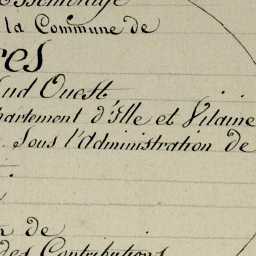 la Commune de
Sud Ouest
partement d'Ille et Vilaine
Sous l'Administration de
de
des Contributions